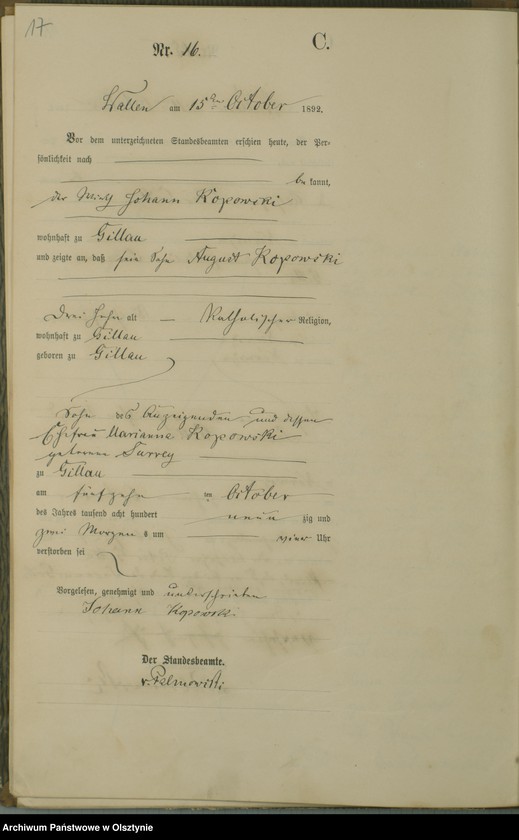 17
C.
Nr. 16.
Wallen am 15ten October 1892.
Vor dem unterzeichneten Standesbeamten erschien heute, der Per-
sönlichkeit nach
be kannt,
der Wirth Johann Kopowski
wohnhaft zu Gillau
und zeigte an, daß sein Sohn August Kopowski
Drei Jahr alt — Katholischer Religion,
wohnhaft zu Gillau
geboren zu Gillau
Sohn des Anzeigenden und dessen
Ehefrau Marianna Kopowski
geborene
zu Gillau
am fünfzehn ten October
des Jahres tausend acht hundert neun zig und
zwei Morgen s um vier Uhr
verstorben sei
Vorgelesen, genehmigt und unterschrieben
Johann Kopowski
Der Standesbeamte.
Archiwum Państwowe w Olsztynie